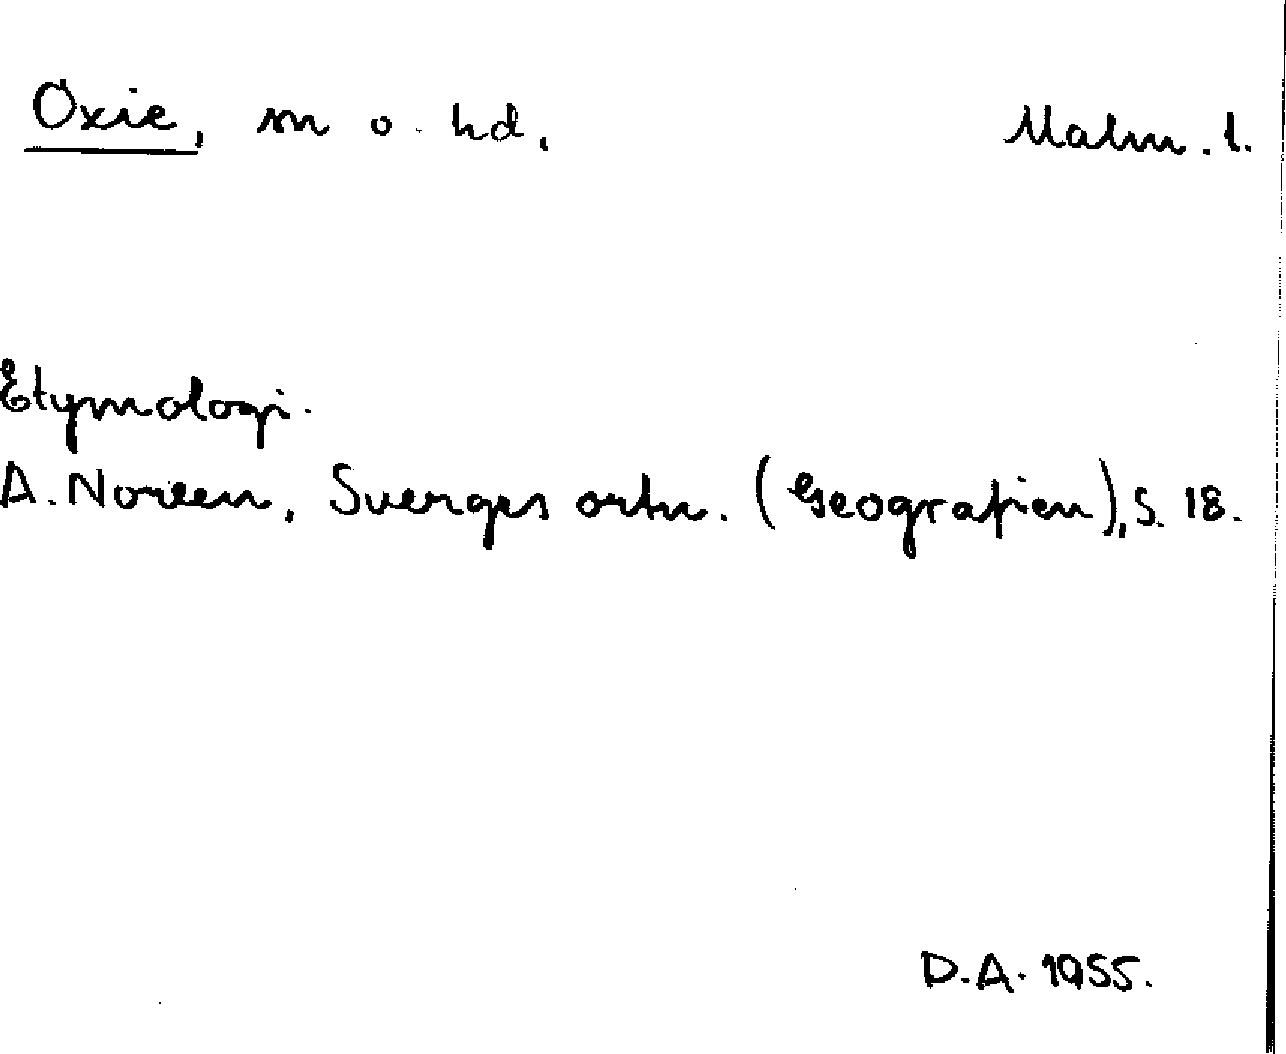 Oxie, sn o. hd. Malm. l.
Etymologi.
A. Noreen, Sverges ortn. (Geografien), s. 18.
D.A. 1955.